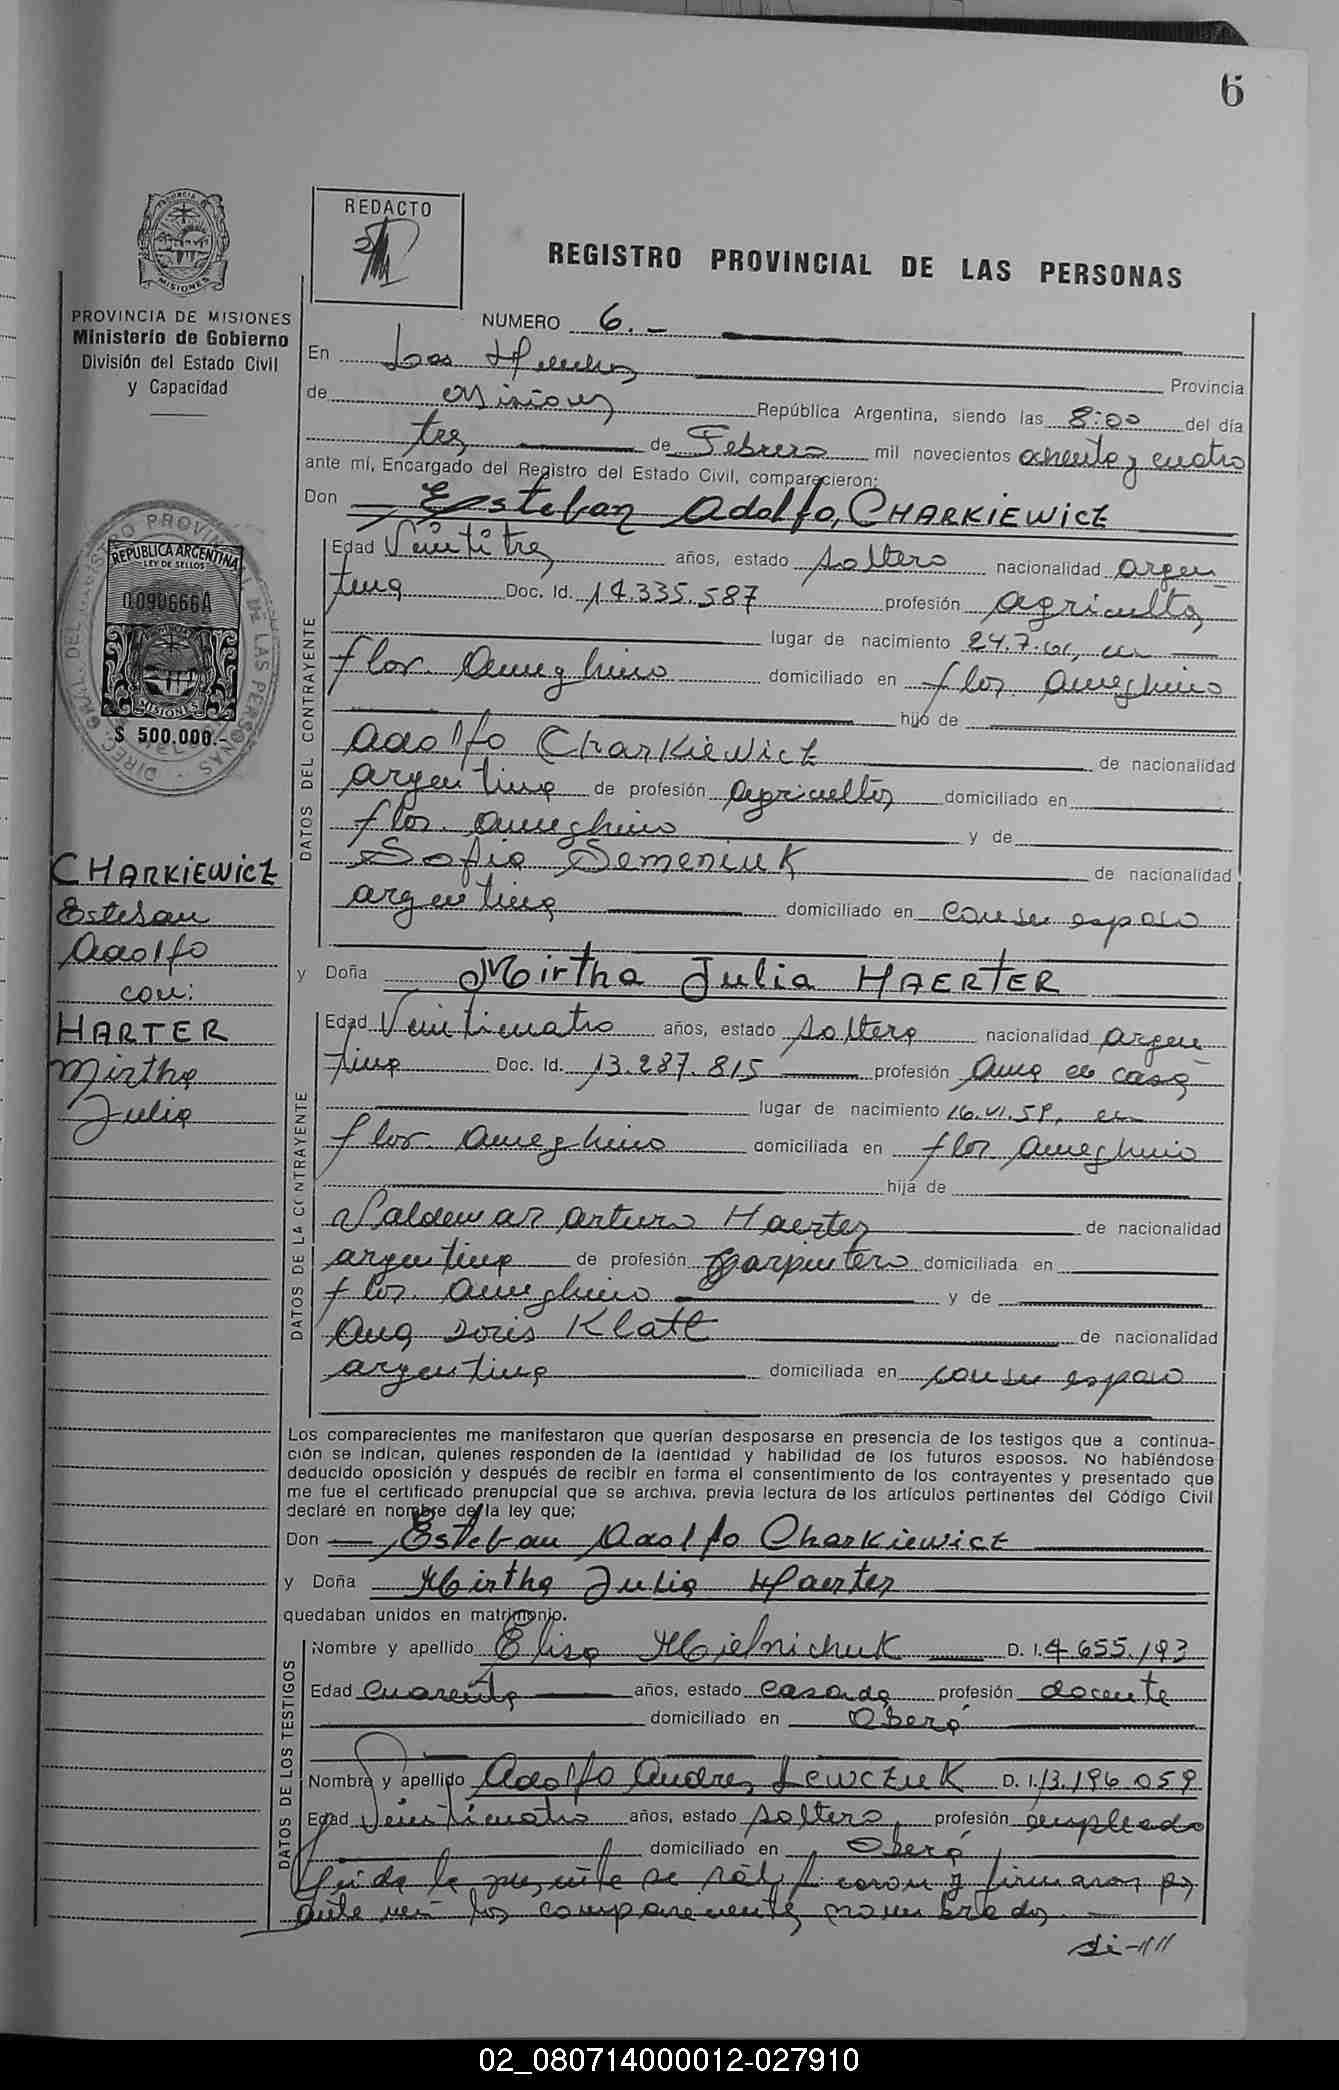 6
REDACTO
REGISTRO PROVINCIAL DE LAS PERSONAS
PROVINCIA DE MISIONES
Ministerio de Gobierno
División del Estado Civil
y Capacidad
REPUBLICA ARGENTINA
LEY DE SELLOS
0090666A
MISIONES
$ 500.000.-
CHARKIEWICZ
Esteban
Adolfo
con:
HARTER
Mirtha
Julia
NUMERO 6.-
En Los Helechos Provincia
de Misiones República Argentina, siendo las 8:00 del día
tres de Febrero mil novecientos ochenta y cuatro
ante mí, Encargado del Registro del Estado Civil, comparecieron:
Don Esteban Adolfo, CHARKIEWICZ
DATOS DEL CONTRAYENTE
Edad Veintitres años, estado soltero nacionalidad argen
tina Doc. Id. 14.335.587 profesión agricultor
lugar de nacimiento 24.7.60, en
flor. Ameghino domiciliado en flor. Ameghino
hijo de
Adolfo Charkiewicz de nacionalidad
argentina de profesión agricultor domiciliado en
flor. Ameghino y de
Sofia Semeniuk de nacionalidad
argentina domiciliado en con su esposo
y Doña Mirtha Julia HAERTER
DATOS DE LA CONTRAYENTE
Edad Veinticuatro años, estado soltera nacionalidad argen
tina Doc. Id. 13.287.815 profesión ama de casa
lugar de nacimiento 16.VI.59, en
flor. Ameghino domiciliada en flor Ameghino
hija de
Valdemar Arturo Haerter de nacionalidad
argentina de profesión carpintero domiciliada en
flor. Ameghino y de
Ana Doris Klatt de nacionalidad
argentina domiciliada en con su esposo
Los comparecientes me manifestaron que querían desposarse en presencia de los testigos que a continua-
ción se indican, quienes responden de la identidad y habilidad de los futuros esposos. No habiéndose
deducido oposición y después de recibir en forma el consentimiento de los contrayentes y presentado que
me fue el certificado prenupcial que se archiva, previa lectura de los artículos pertinentes del Código Civil
declaré en nombre de la ley que;
Don Esteban Adolfo Charkiewicz
y Doña Mirtha Julia Haerter
quedaban unidos en matrimonio.
DATOS DE LOS TESTIGOS
Nombre y apellido Elisa Mielnichuk D. I. 4.655.193
Edad Cuarenta años, estado casada profesión docente
domiciliado en Oberá
Nombre y apellido Adolfo Andres Lewczuk D. I. 13.196.059
Edad Veinticuatro años, estado soltero profesión empleado
domiciliado en Oberá
leida la presente se ratificaron y firmaron por
ante mi los comparecientes nombrados.
02_080714000012-027910